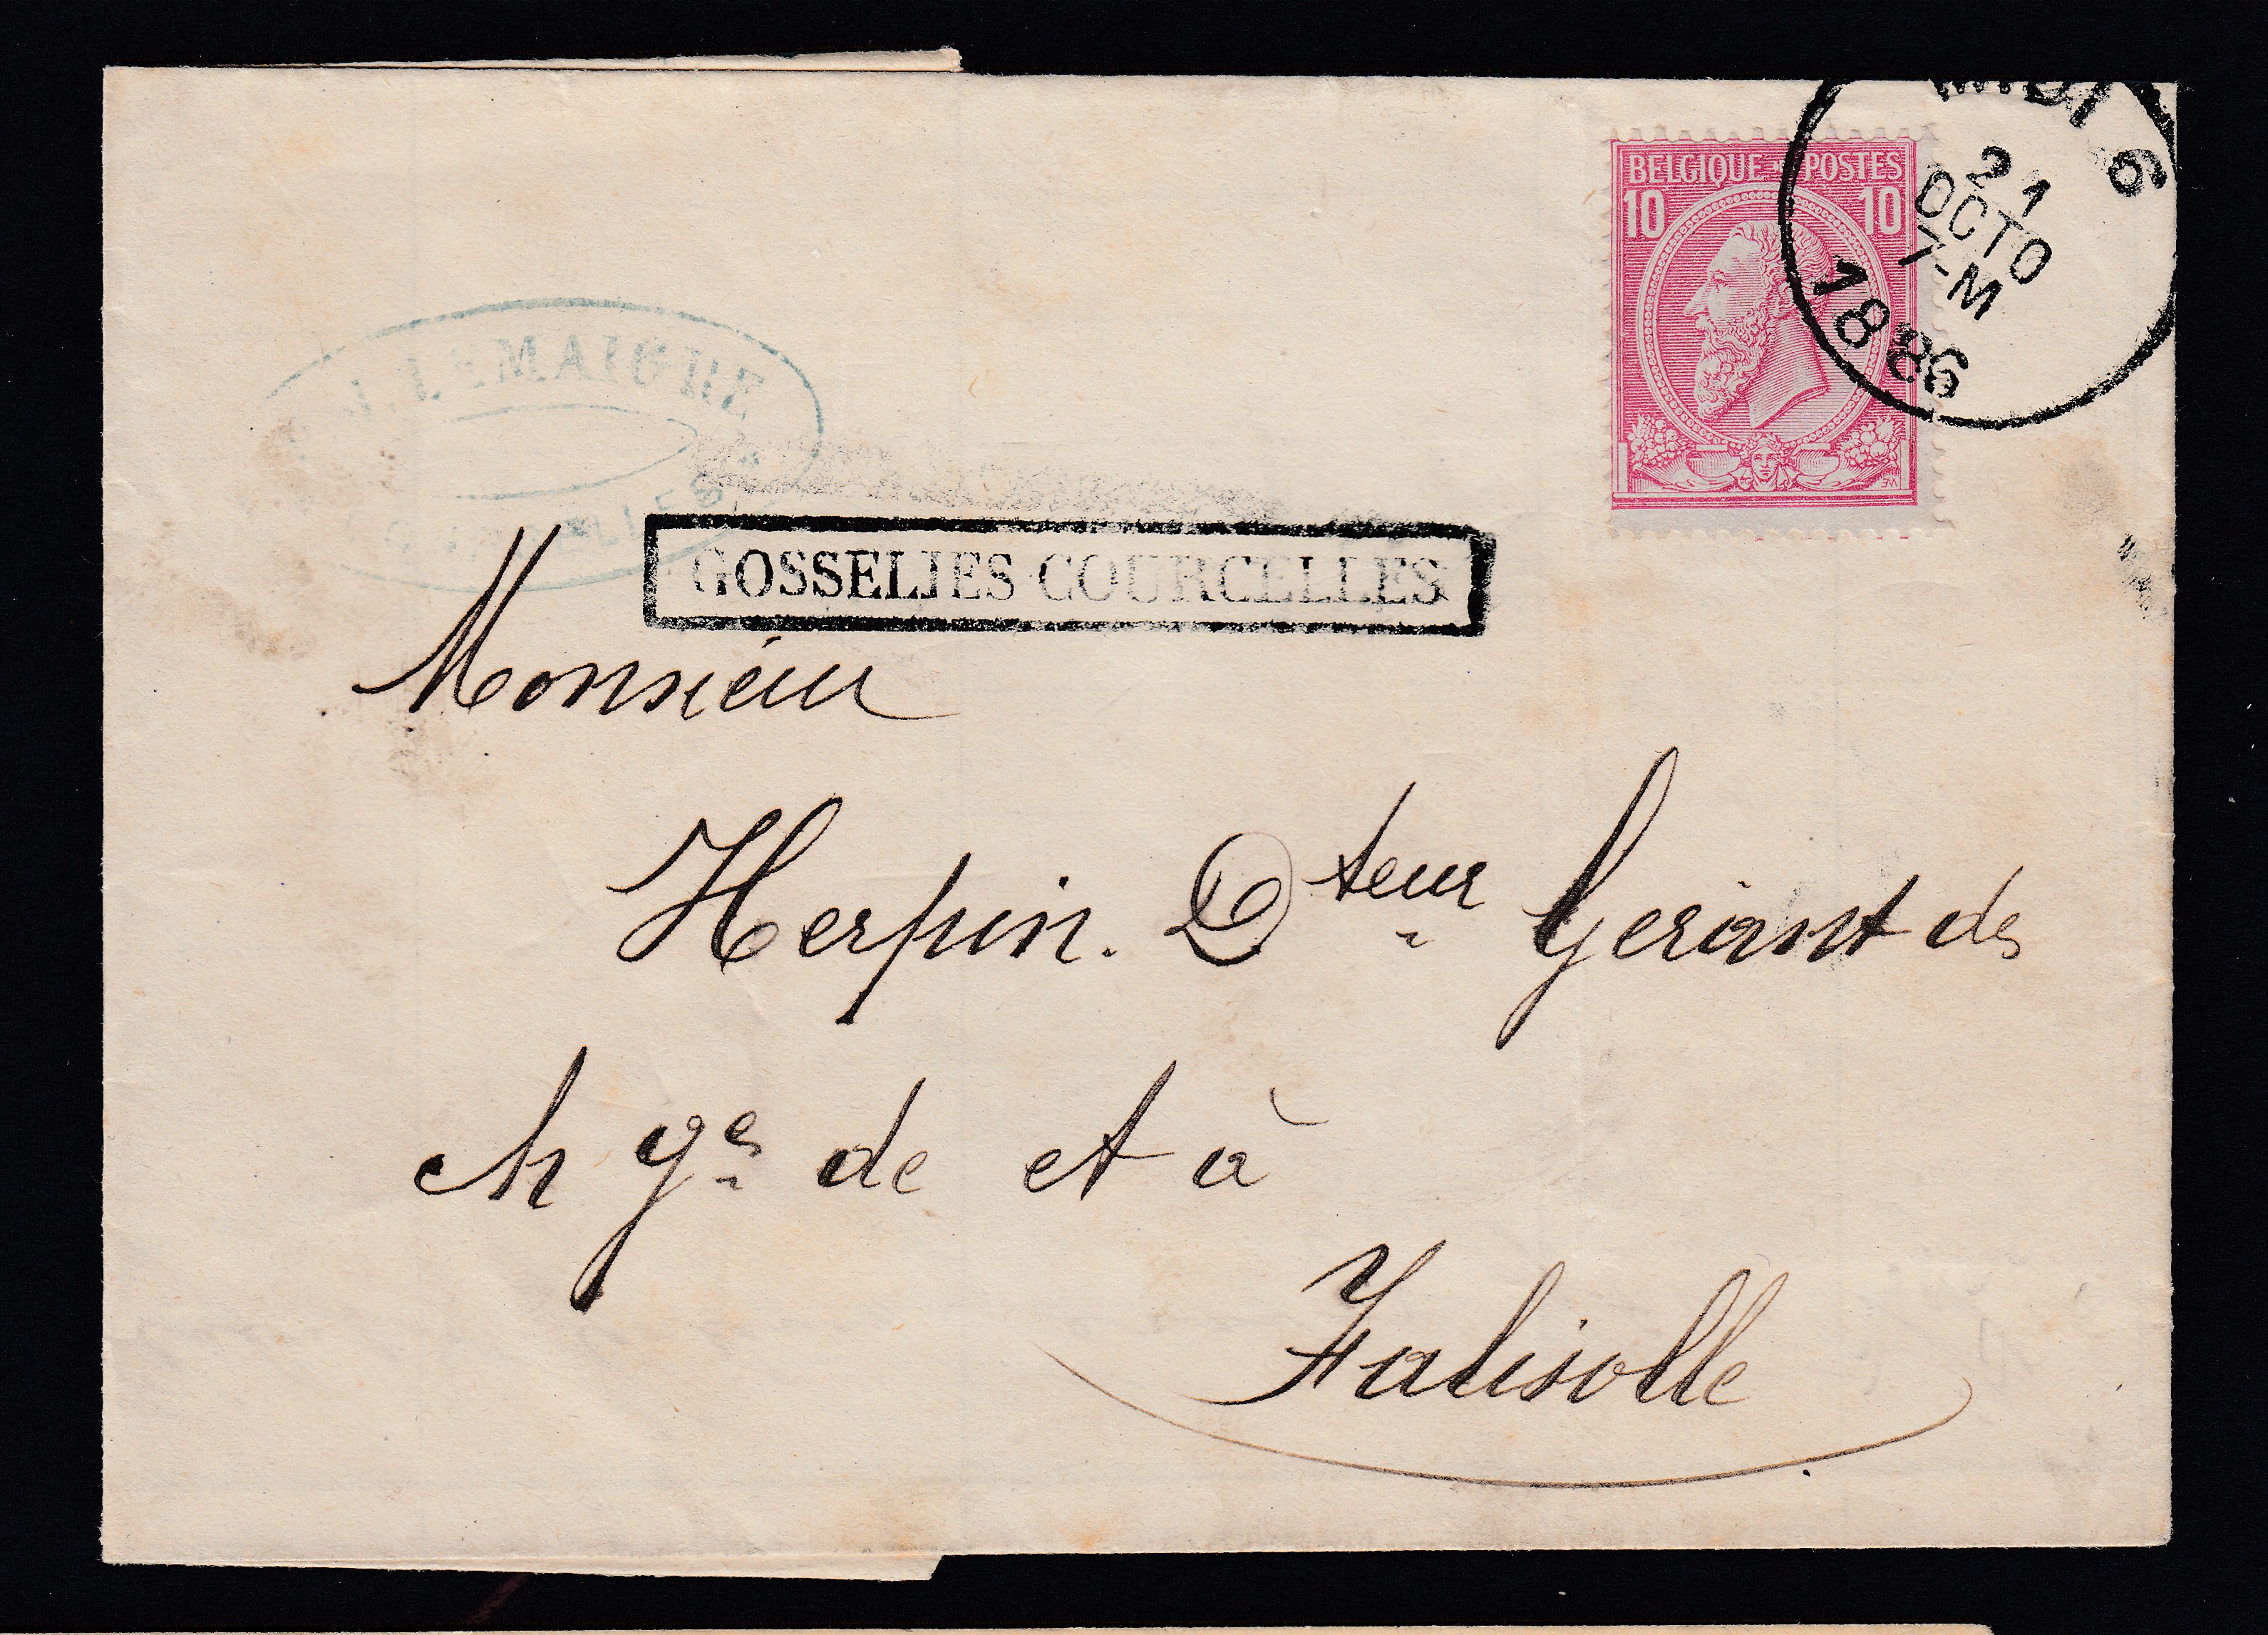 BELGIQUE POSTES
10 10
MIDI 6
21
OCTO
7-M
1886
J. LEMAIGRE
GOSSELIES COURCELLES
Monsieur
Herpin. Dteur Gerant des
ch ges de et à
Falisolle